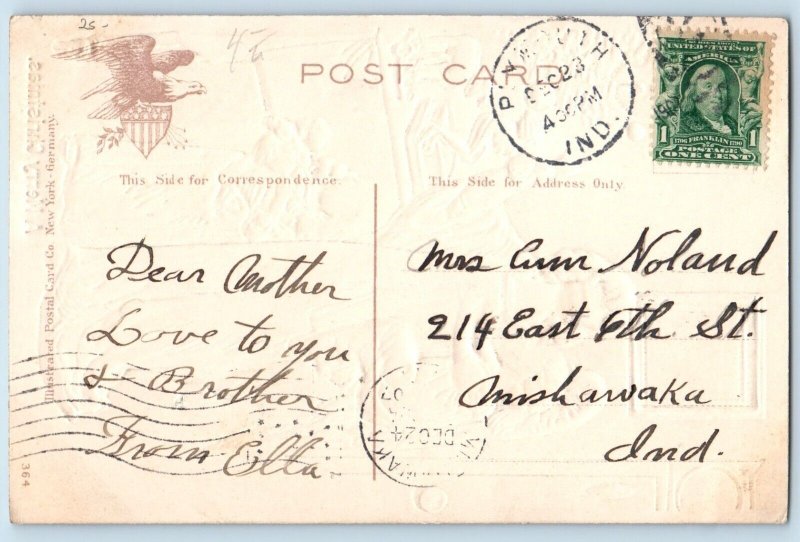 25-
POST CARD
PLYMOUTH
DEC 23
4 30 PM
IND.
UNITED STATES OF
AMERICA
1 1706 FRANKLIN 1790 1
POSTAGE
ONE CENT
This Side for Correspondence.
This Side for Address Only.
Illustrated Postal Card Co. New York - Germany.
364
Dear Mother
Love to you
& Brother
From Ella
Mrs Ann Noland
214 East 6th St.
Mishawaka
Ind.
DEC 24